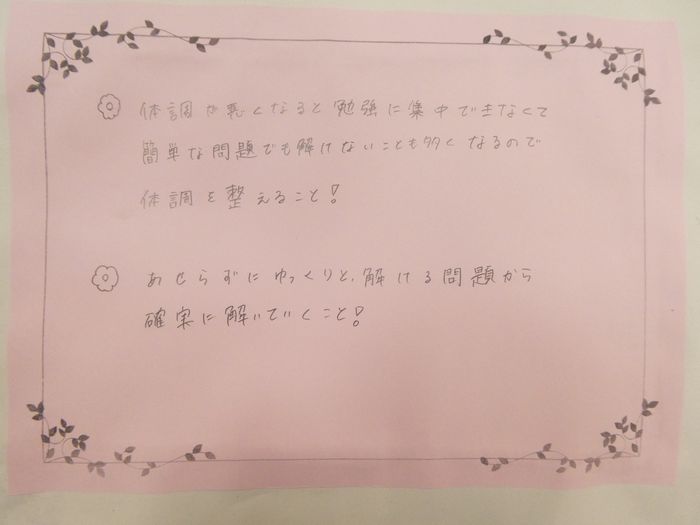 体調が悪くなると勉強に集中できなくて
簡単な問題でも解けないことも多くなるので
体調を整えること!
あせらずにゆっくりと、解ける問題から
確実に解いていくこと!